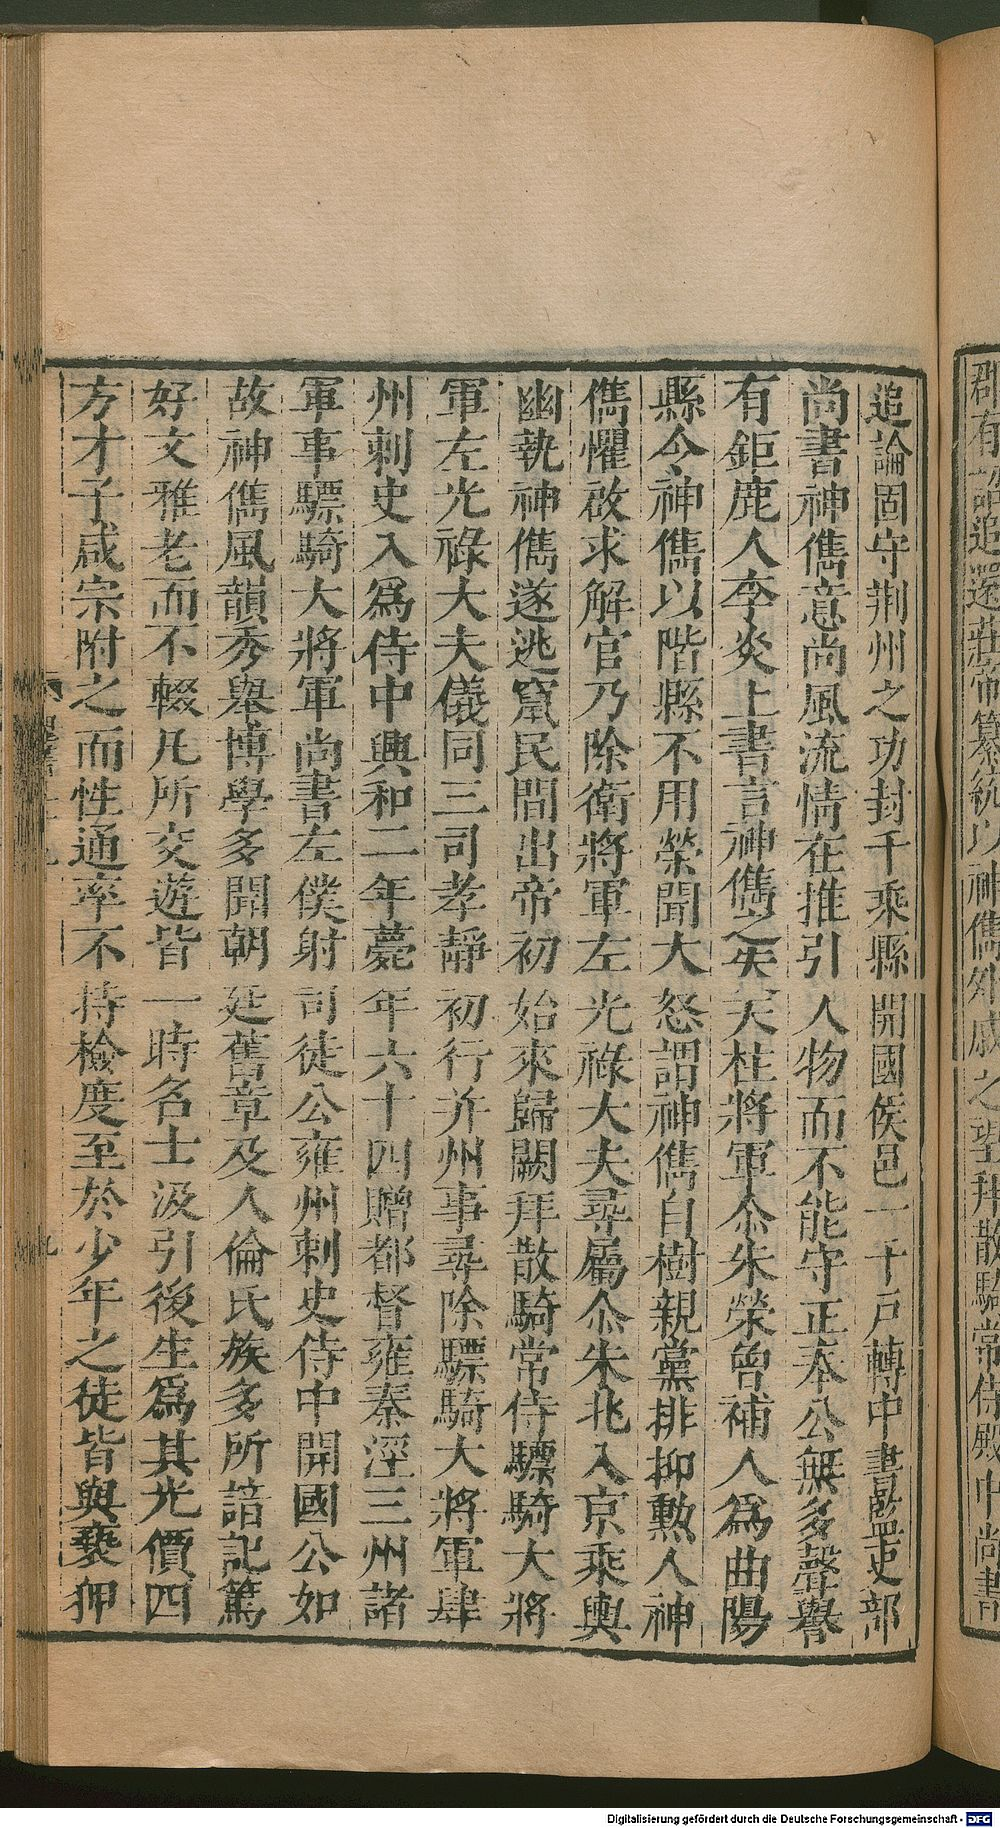 追論固守荆州之功封千乘縣開國侯邑一千戸轉中書監吏部
尚書神儁意尚風流情在推引人物而不能守正奉公無多聲譽
有鉅鹿人李炎上書言神儁之失天柱將軍尒朱榮曾補人爲曲陽
縣令神儁以階縣不用榮聞大怒謂神儁自樹親黨排抑勲人神
儁懼啟求解官乃除衛將軍左光祿大夫尋屬尒朱兆入京乘輿
幽執神儁遂逃竄民間出帝初始來歸闕拜散騎常侍驃騎大將
軍左光祿大夫儀同三司孝靜初行并州事尋除驃騎大將軍肆
州刺史入爲侍中興和二年薨年六十四贈都督雍秦涇三州諸
軍事驃騎大將軍尚書左僕射司徒公雍州刺史侍中開國公如
故神儁風韻秀舉博學多聞朝廷舊章及人倫氏族多所諳記篤
好文雅老而不輟凡所交遊皆一時名士汲引後生爲其光價四
方才子咸宗附之而性通率不持檢度至於少年之徒皆與褻狎
郡有詔追還莊帝纂統以神儁外戚之望拜散騎常侍殿中尚書
Digitalisierung gefördert durch die Deutsche Forschungsgemeinschaft - DFG